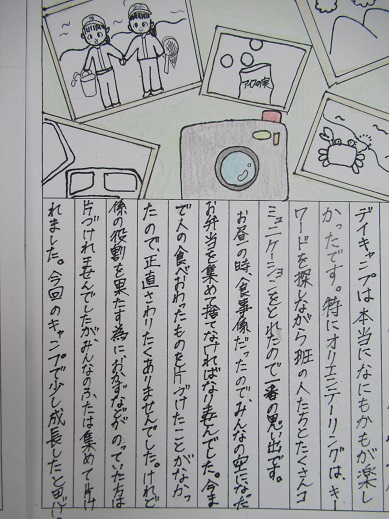 アメフの実
デイキャンプは本当になにもかもが楽し
かったです。特にオリエンテーリングは、キー
ワードを探しながら班の人たちとたくさんコ
ミュニケーションをとれたので一番の思い出です。
お昼の時、食事係だったので、みんなの空になった
お弁当を集めて捨てなければなりませんでした。今ま
で人の食べおわったものを片づけたことがなかっ
たので、正直さわりたくありませんでした。けれど
係の役割を果たす為におかずなどがのっていた方は
片づけれませんでしたがみんなのふたは集めて片け
れました。今回のキャンプで少し成長したと思い